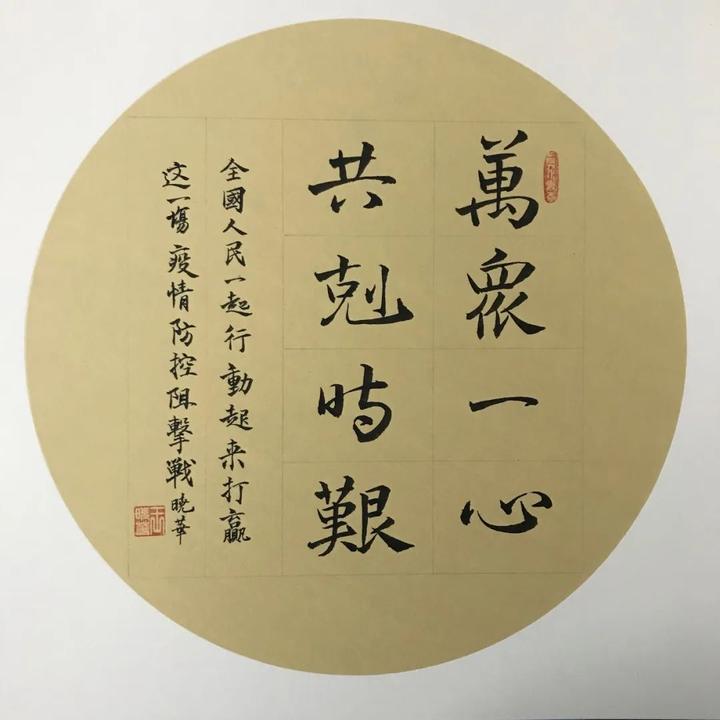 萬眾一心
共剋時艱
全國人民一起行動起来打贏
这一場疫情防控阻擊戰
曉華